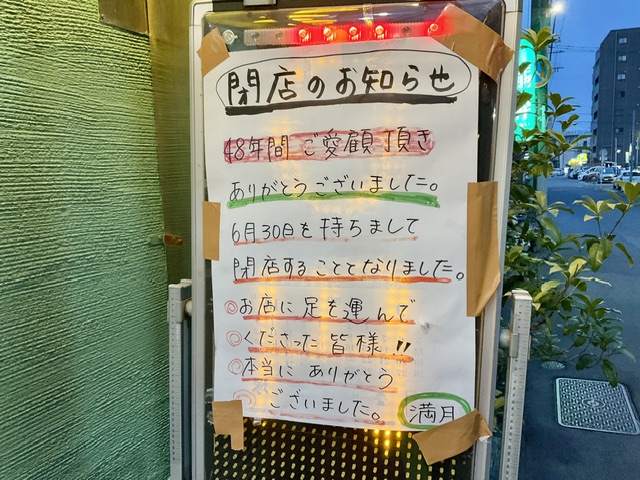 閉店のお知らせ
48年間ご愛顧頂き
ありがとうございました。
6月30日を持ちまして
閉店することとなりました。
◎お店に足を運んで
◎くださった皆様!!
◎本当にありがとう
◎ございました。 満月